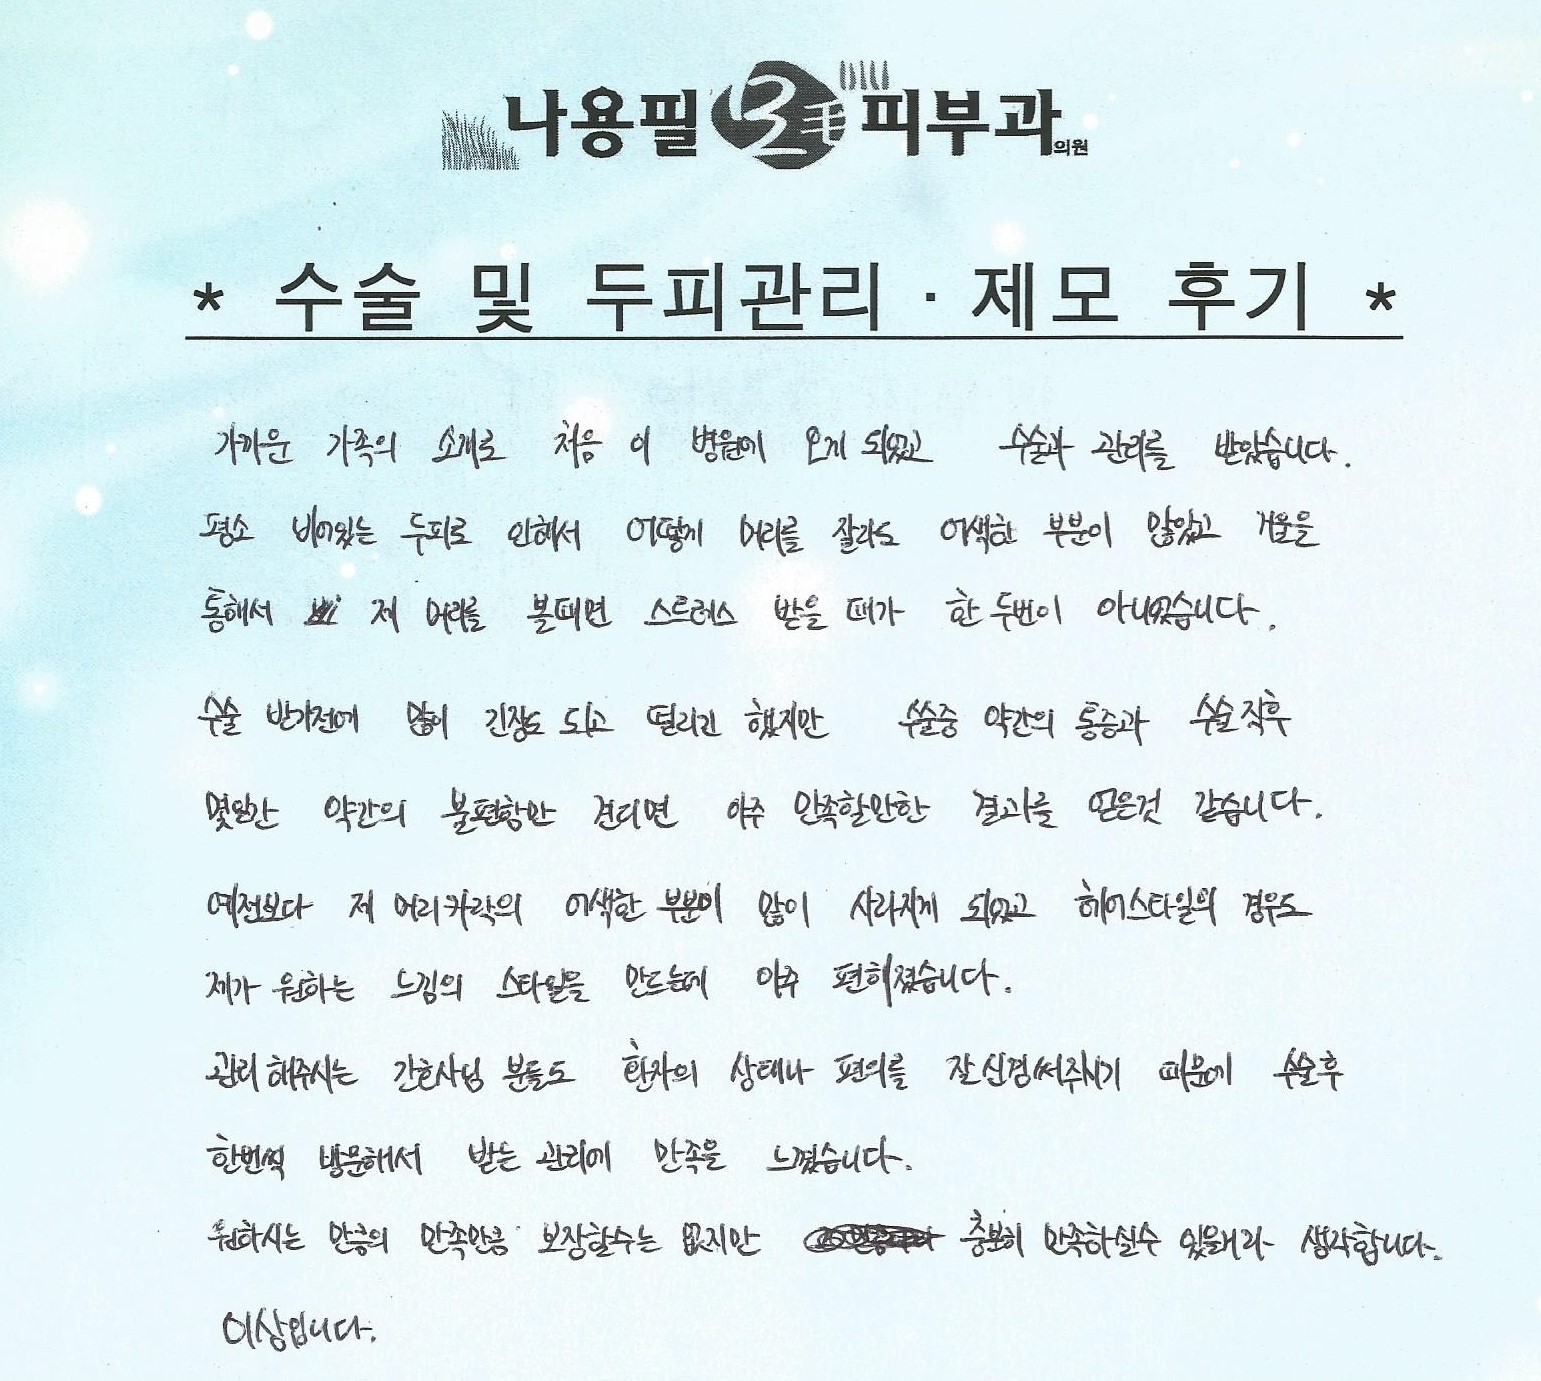 나용필 毛 피부과의원
* 수술 및 두피관리 · 제모 후기 *
가까운 가족의 소개로 처음 이 병원에 오게 되었고 수술과 관리를 받았습니다.
평소 비어있는 두피로 인해서 어떻게 머리를 잘라도 어색한 부분이 많았고 거울을
통해서 제 머리를 볼때면 스트레스 받을 때가 한 두번이 아니었습니다.
수술 받기전에 많이 긴장도 되고 떨리긴 했지만 수술중 약간의 통증과 수술직후
몇일간 약간의 불편함만 견디면 아주 만족할만한 결과를 얻은것 같습니다.
예전보다 제 머리카락의 어색한 부분이 많이 사라지게 되었고 헤어스타일의 경우도
제가 원하는 느낌의 스타일을 만드는데 아주 편해졌습니다.
관리해주시는 간호사님 분들도 환자의 상태나 편의를 잘신경써주시기 때문에 수술후
한번씩 방문해서 받는 관리에 만족을 느꼈습니다.
원하시는 만큼의 만족만큼 보장할수는 없지만 충분히 만족하실수 있을꺼라 생각합니다.
이상입니다.